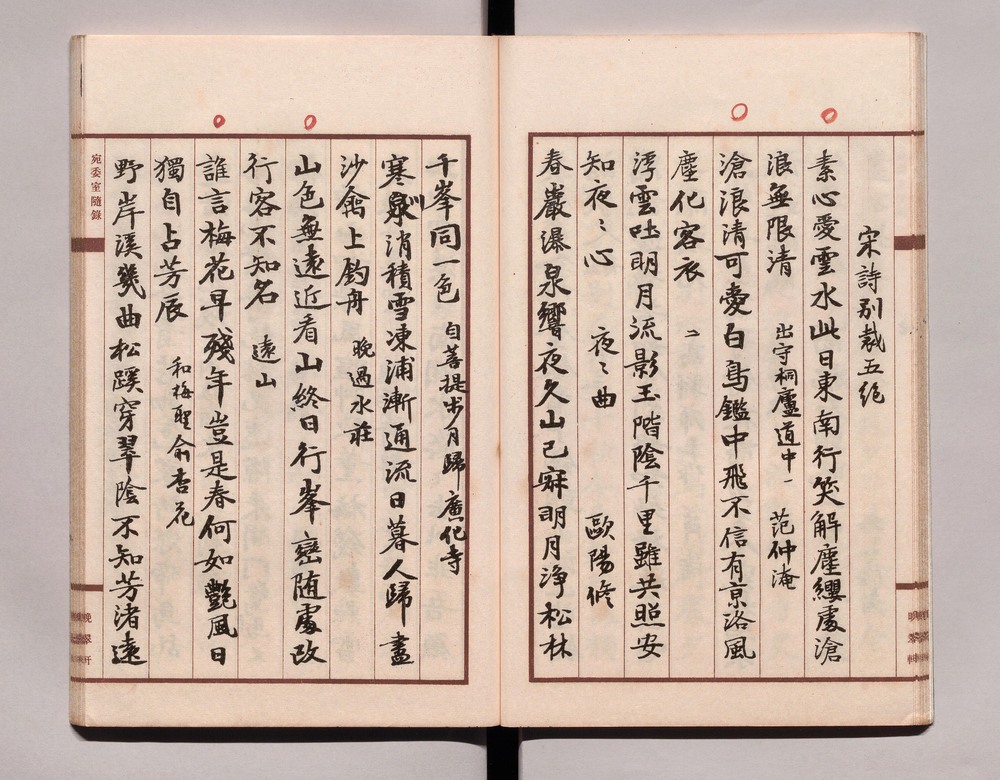 宋詩別裁五絕
素心愛雲水此日東南行笑解塵纓處滄
浪無限清 出守桐廬道中一 范仲淹
滄浪清可愛白鳥鑑中飛不信有京洛風
塵化客衣 二
浮雲吐明月流影玉階陰千里雖共照安
知夜〻心 夜〻曲 歐陽修
春巖瀑泉響夜久山已寂明月淨松林
千峯同一色 自菩提步月歸廣化寺
寒泉消積雪凍浦漸通流日暮人歸盡
沙禽上釣舟 晚過水莊
山色無遠近看山終日行峯巒随處改
行客不知名 遠山
誰言梅花早殘年豈是春何如艷風日
獨自占芳辰 和梅聖俞杏花
野岸溪幾曲松蹊穿翠陰不知芳渚遠
宛委室隨錄